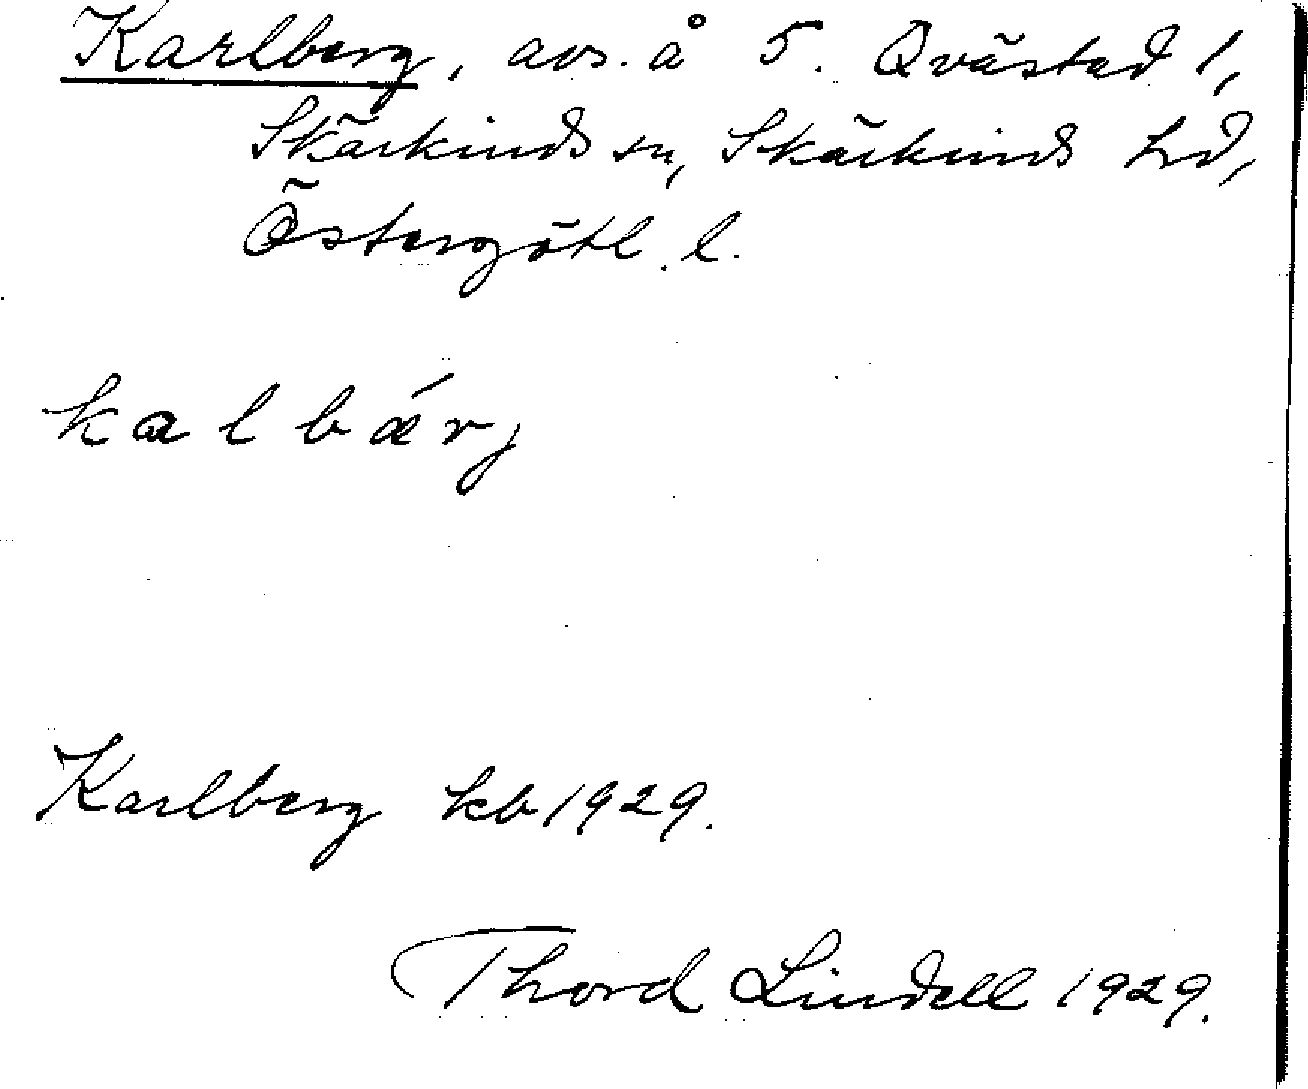 Karlberg, avs. å 5. Qvästad 1,
Skärkinds sn, Skärkinds hd,
Östergötl. l.
kalbǽrj
Karlberg kb 1929.
Thord Lindell 1929.